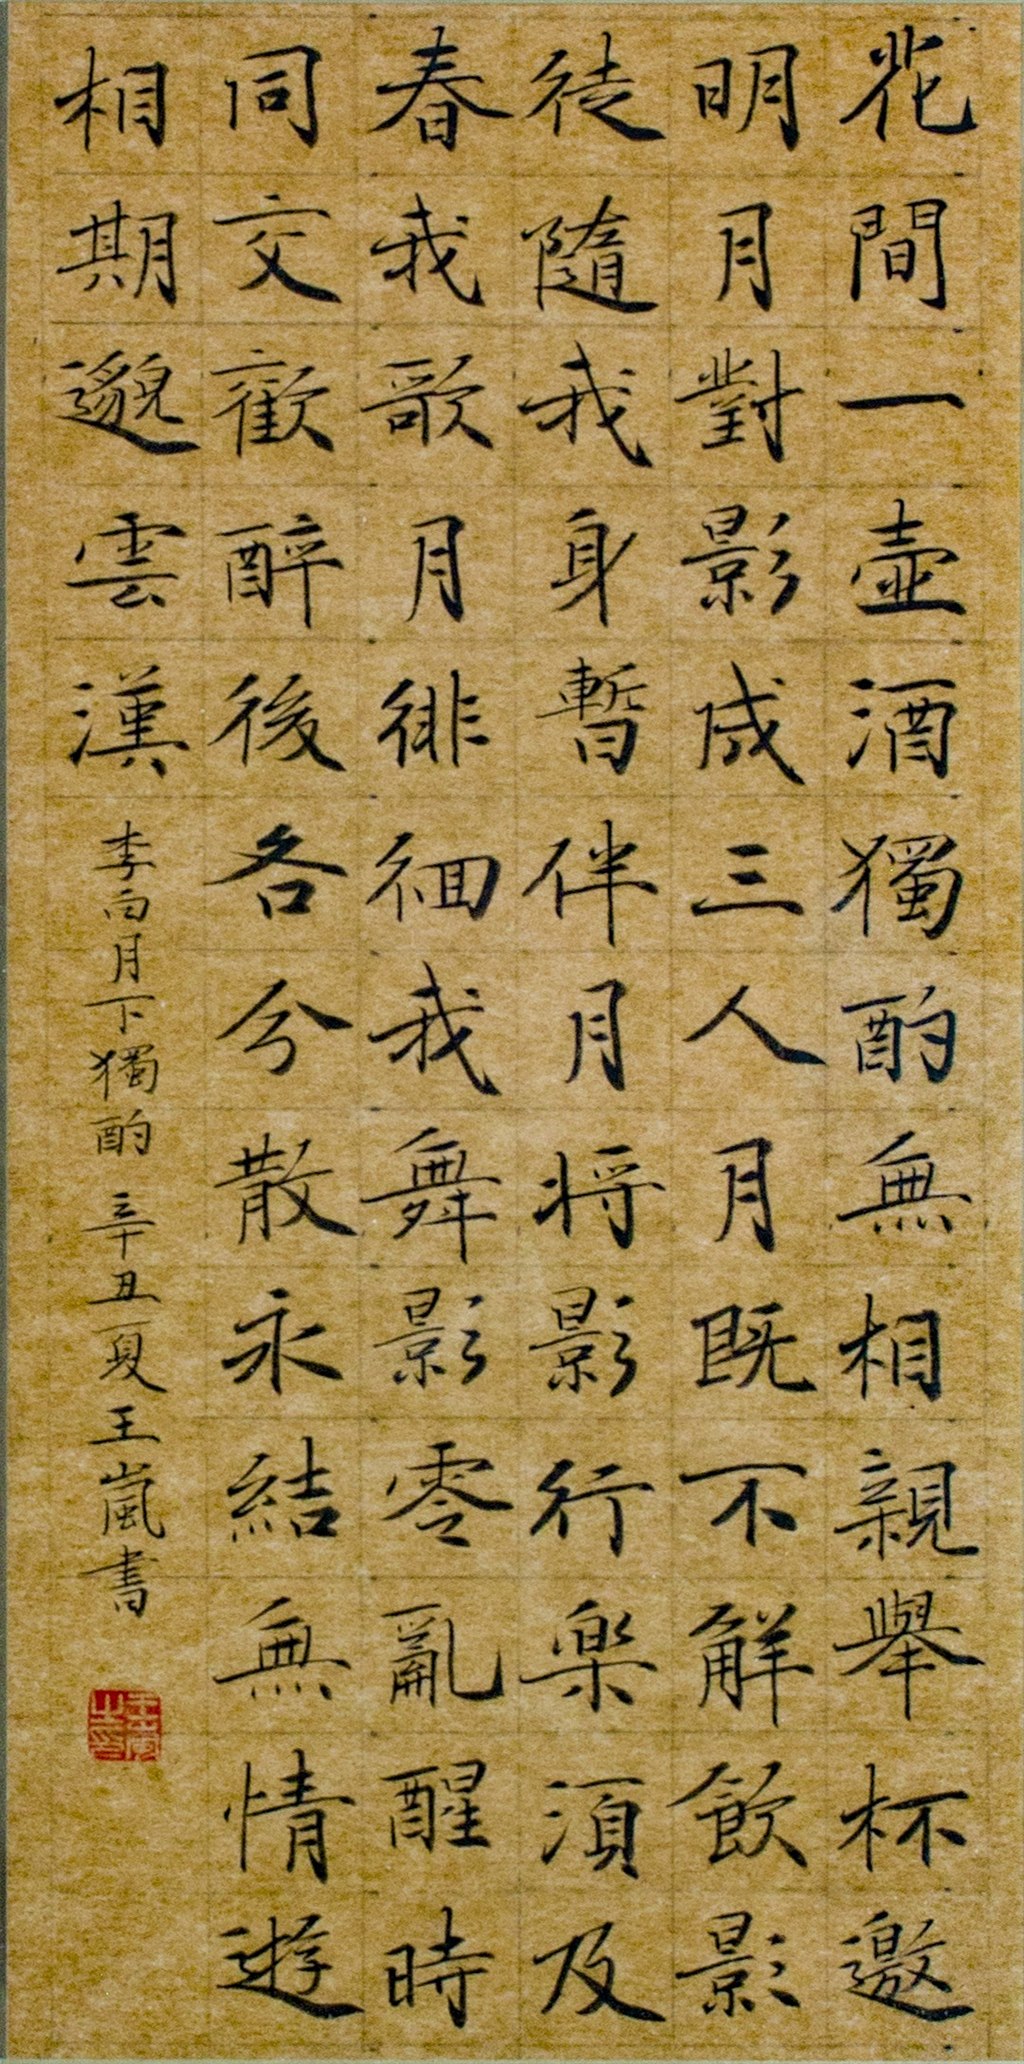 花間一壺酒獨酌無相親舉杯邀
明月對影成三人月既不解飲影
徒隨我身暫伴月将影行楽須及
春我歌月徘徊我舞影零亂醒時
同交歡醉後各分散永結無情遊
相期邈雲漢
李白月下獨酌 辛丑夏王嵐書